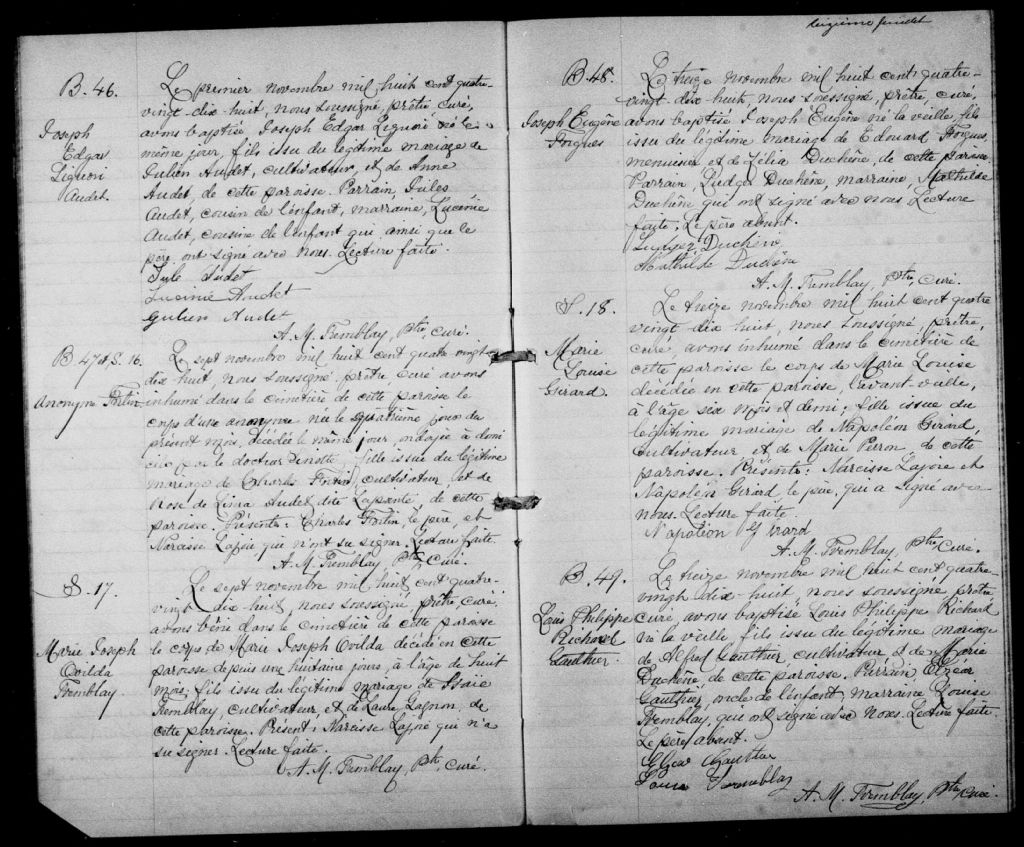 B. 46.
Joseph
Edgar
Liguori
Audet.
Le premier novembre mil huit cent quatre-
vingt dix huit, nous soussigné, prêtre curé,
avons baptisé Joseph Edgar Liguori né le
même jour, fils issu du légitime mariage de
Julien Audet, cultivateur, et de Anne
Audet, de cette paroisse. Parrain, Jules
Audet, cousin de l'enfant, marraine, Lucinie
Audet, cousine de l'enfant qui ainsi que le
père ont signé avec nous. Lecture faite.
Jule Audet
Lucinie Audet
Julien Audet
A. M. Tremblay, Ptre, Curé.
B 47 et S. 16.
Anonyme Fortin
Le sept novembre mil huit cent quatre vingt
dix huit, nous soussigné prêtre, curé avons
inhumé dans le cimetière de cette paroisse le
corps d'une anonyme née le quatrième jour du
présent mois, décédée le même jour, ondoyée à
par le docteur fille issue du légitime
mariage de Charles Fortin, cultivateur et de
Rose de Lima Audet dite Lapointe, de cette
paroisse. Présents: Charles Fortin, le père, et
Narcisse Lajoie qui n'ont su signer. Lecture faite.
A. M. Tremblay, Ptre Curé.
S. 17.
Marie Joseph
Ovilda
Tremblay
Le sept novembre mil huit cent quatre-
vingt dix huit, nous soussigné, prêtre, curé,
avons béni dans le cimetière de cette paroisse
le corps de Marie Joseph Ovilda décédé en cette
paroisse depuis une huitaine jours, à l'âge de huit
mois; fils issu du légitime mariage de Isaïe
Tremblay, cultivateur, et de Laure Gagnon, de
cette paroisse. Présent: Narcisse Lajoie qui n'a
su signer. Lecture faite.
A. M. Tremblay, Ptre, curé.
feuillet
B. 48.
Joseph Eugène
Forgues
Le treize novembre mil huit cent quatre-
vingt-dix huit, nous soussigné, prêtre, curé,
avons baptisé Joseph Eugène né la veille, fils
issu du légitime mariage de Edouard Forgues,
menuisier et de Délia Duchêne, de cette paroisse
Parrain, Ludger Duchêne, marraine, Mathilde
Duchêne qui ont signé avec nous. Lecture
faite. Le père absent.
Ludger Duchêne
Mathilde Duchêne
A. M. Tremblay, Ptre, curé.
S. 18.
Marie
Louise
Girard.
Le treize novembre mil huit cent quatre
vingt dix huit, nous soussigné, prêtre,
curé, avons inhumé dans le cimetière de
cette paroisse le corps de Marie Louise
décédée en cette paroisse, l'avant-veille,
à l'âge six mois et demi; fille issue du
légitime mariage de Napoléon Girard,
cultivateur, et de Marie Perron, de cette
paroisse. Présents: Narcisse Lajoie et
Napoléon Girard, le père, qui a signé avec
nous. Lecture faite.
Napoléon Girard
A. M. Tremblay, Ptre, Curé.
B. 49.
Louis Philippe
Richard
Gauthier.
Le treize novembre mil huit cent quatre-
vingt dix-huit, nous soussigné prêtre
curé, avons baptisé Louis Philippe Richard
né la veille, fils issu du légitime mariage
de Alfred Gauthier, cultivateur & de Marie
Duchêne de cette paroisse. Parrain, Elzéar
Gauthier, oncle de l'enfant, marraine Louise
Tremblay, qui ont signé avec nous. Lecture faite.
Le père absent.
Elzéar Gauthier
Louise Tremblay
A. M. Tremblay, Ptre, curé.